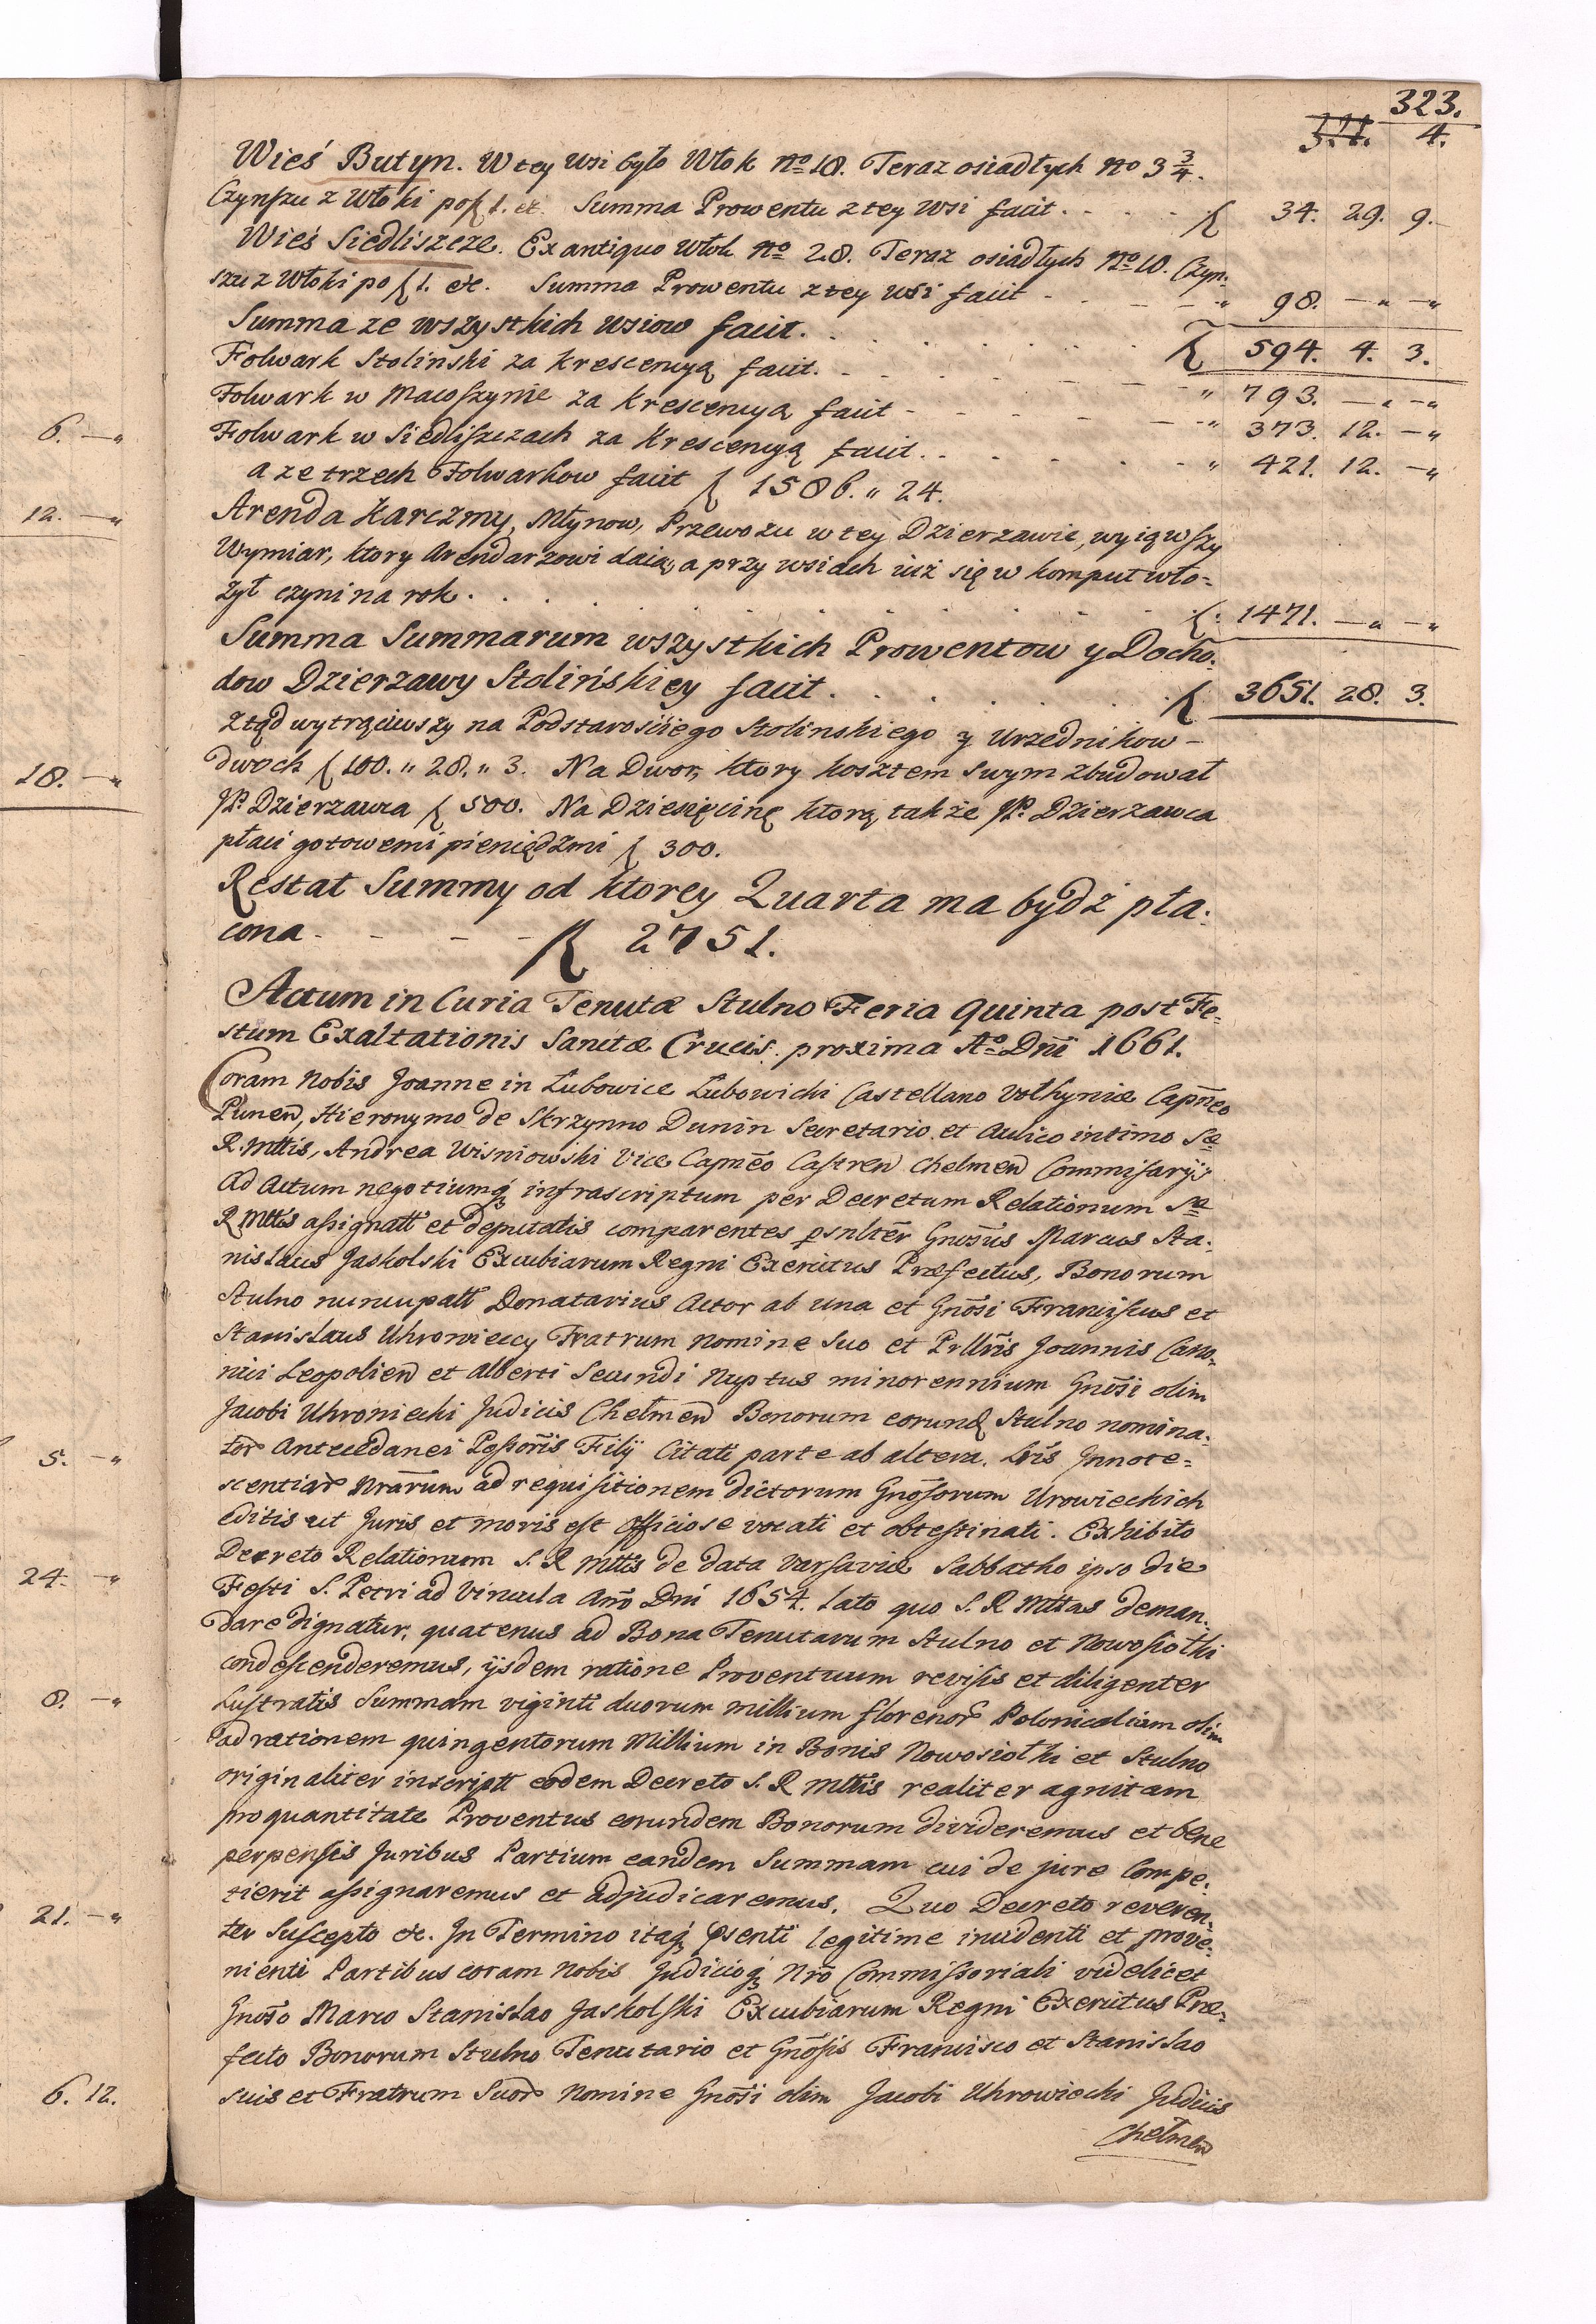 323.
3.21. 4.
Wieś Butyn. W tey Wsi było Włok No 18. Teraz osiadłych No 3 3/4.
Czynszu z Włoki po ƒ 1. etc. Summa Prowentu z tey Wsi facit. . . . . ƒ 34. 29. 9.
Wieś Siedliszcze. Ex antiquo Włok No 28. Teraz osiadłych No 10. Czyn-
szu z Włoki po ƒ 1. etc. Summa Prowentu z tey Wsi facit - - - - " 98. — " — "
Summa ze wszystkich Wsiow facit. . . . . . . ƒ 594. 4. 3.
Folwark Stolinski za Krescencyą facit. - - - - - " 793. — " — "
Folwark w Macoszynie za Krescencyą facit - - - - - " 373. 12. — "
Folwark w Siedliszczach za Krescencyą facit. . - - - - " 421. 12. — "
a ze trzech Folwarkow facit ƒ 1586. " 24.
Arenda Karczmy, Młynow, Przewozu w tey Dzierzawie, wyiąwszy
Wymiar, ktory Arendarzowi daią, a przy wsiach iuż się w komput wło=
żył czyni na rok. . . . . . . ƒ. 1471. — " — "
Summa Summarum wszystkich Prowentow y Docho-
dow Dzierzawy Stolińskiey facit . . . . . . ƒ 3651. 28. 3.
Ztąd wytrąciwszy na Podstarościego Stolinskiego y Urzednikow -
dwoch ƒ 100. " 28. " 3. Na Dwor, ktory kosztem swym zbudował
JP. Dzierzawca ƒ 500. Na Dziesięcinę ktorą także JP. Dzierzawca
płaci gotowemi pieniędzmi ƒ 300.
Restat Summy od ktorey Quarta ma bydź pła-
cona - - - - ƒ 2751.
Actum in Curia Tenutæ Stulno Feria quinta post Fe-
stum Exaltationis Sanctæ Crucis proxima Ao Dni 1661.
Coram Nobis Joanne in Łubowice Łubowicki Castellano Volhyniæ Capneo
Pinen, Hieronymo de Skrzynno Dunin Secretario et Aulico intimo Sæ
R. Mttis, Andrea Wisniowski Vice Capneo Castren Chelmen Commissarijs
ad Actum negotiumq infrascriptum per Decretum Relationum Sæ
R Mttis assignatt et deputatis comparentes psnlter Gnosus Marcus Sta-
nislaus Jaskolski Excubiarum Regni Exercitus Præfectus, Bonorum
Stulno nuncupatt Donatarius Actor ab una et Gnosi Franciscus et
Stanislaus Uhrowieccy Fratrum Nomine Suo et Prllris Joannis Cano-
nici Leopolien et Alberti Secundi Nuptus minorennium Gnosi olim
Jacobi Uhrowiecki Judicis Chełmen Bonorum eorund Stulno nomina-
tor Antecedanei Possoris Filij Citati parte ab altera. Lris Innote=
scentiar Nrarum ad requisitionem dictorum Gnosorum Urowieckich
editis ut Juris et moris est officiose vocati et obtestinati. Exhibito
Decreto Relationum S. R Mttis de data Varsaviæ Sabbatho ipso die
Festi S. Petri ad Vincula Ano Dni 1654. lato quo S. R Mttas deman-
dare dignatur, quatenus ad Bona Tenutarum Stulno et Nowosiołki
condescenderemus, ijsdem ratione Proventuum revisis et diligenter
Lustratis Summam viginti duorum millium florenor Polonicalium olim
ad rationem quingentorum Millium in Bonis Nowosiołki et Stulno
originaliter inscriptt eodem Decreto S. R Mttis realiter agnitam
pro quantitate Proventus eorundem Bonorum divideremus et bene
perpensis Juribus Partium eandem Summam cui de jure Compe-
tierit assignaremus et adjudicaremus. Quo Decreto reveren-
ter Suscepto etc. In Termino itaq psenti legitime incidenti et prove-
nienti Partibus coram Nobis Judicioq Nro Commissoriali videlicet
Gnoso Marco Stanislao Jaskolski Excubiarum Regni Exercitus Præ-
fecto Bonorum Stulno Tenutario et Gnosis Francisco et Stanislao
suis et Fratrum Suor Nomine Gnosi olim Jacobi Uhrowiecki Judicis
Chełmen
6. — "
12. — "
18. — "
5. — "
24. — "
8. — "
21. — "
6. 12.